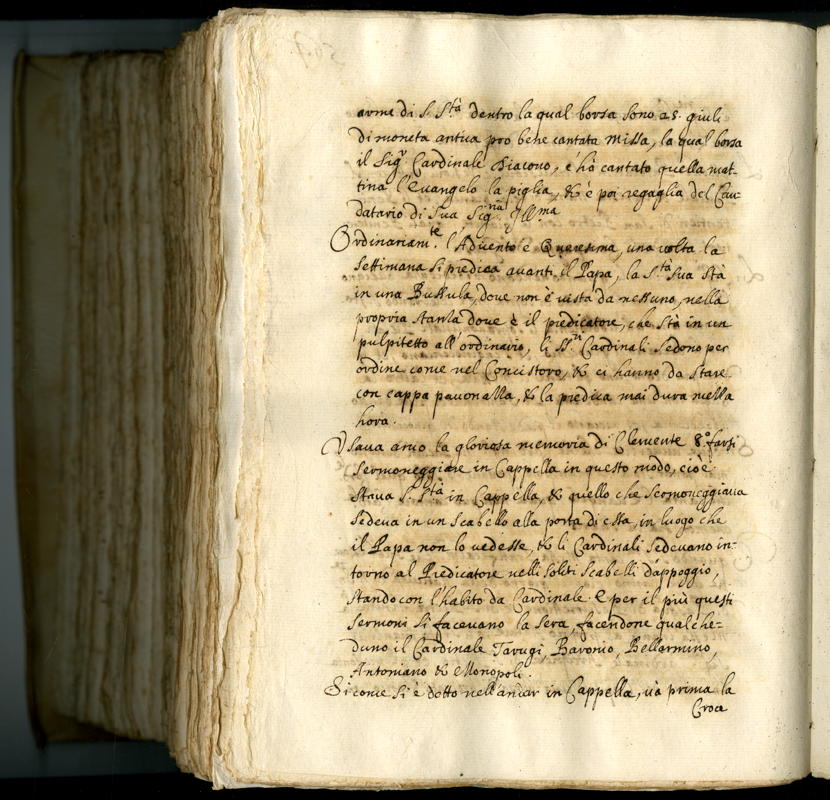 arme di S. Stà dentro la qual borsa sono 25. giuli
di moneta antica pro bene cantata Missa, la qual borsa
il Sigr Cardinale Diacono, è hò cantato quella mat-
tina l'Euangelo la piglia, & è poi regaglia del Cau-
datario di Sua Sigria Illma
Ordinariamte l'Aduento è Queresima, una uolta la
settimana si predica auanti il Papa, la Stà sua stà
in una Bussula, doue non è uista da nessuno, nella
propria stanza doue è il predicatore, che stà in un
pulpitetto all'ordinario, li SSri Cardinali sedono per
ordine come nel Concistoro, & ci hanno da stare
con cappa pauonazza, & la predica mai dura mezza
hora.
Usaua anco la gloriosa memoria di Clemente 8.° farsi
sermoneggiare in Cappella in questo modo, cioè
staua S. Stà in Cappella, & quello che sermoneggiaua
sedeua in un scabello alla porta di essa, in luogo che
il Papa non lo uedesse, & li Cardinali sedeuano in-
torno al Predicatore nelli soliti scabelli d'appoggio,
stando con l'habito da Cardinale. E per il più questi
sermoni si faceuano la sera, facendone qualche-
duno il Cardinale Tarugi, Baronio, Bellarmino,
Antoniano & Monopoli.
Si come si è detto nell'andar in Cappella, uà prima la
Croce